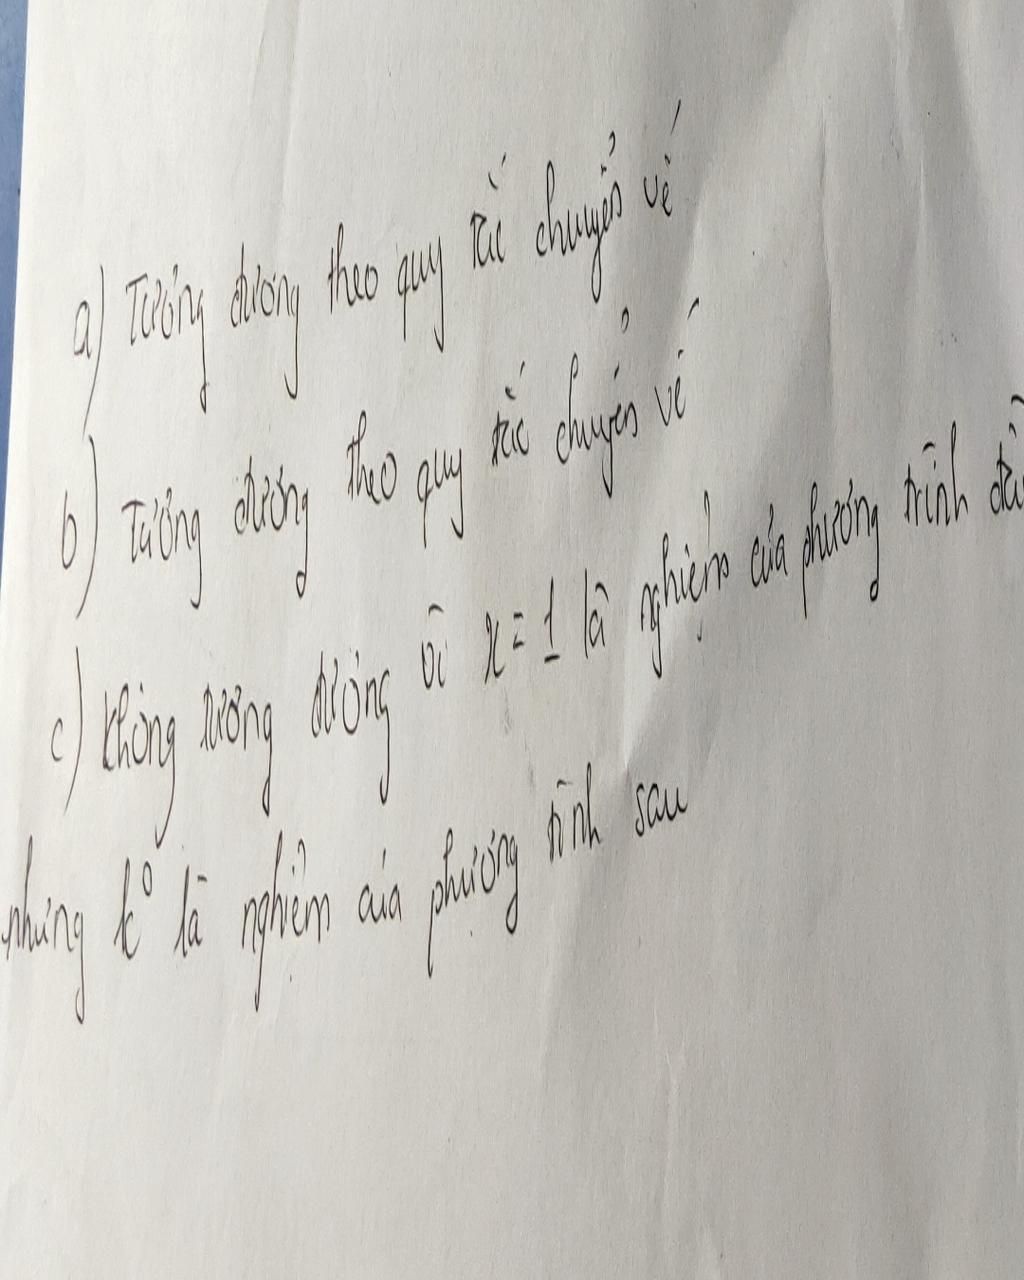 a) Tương đương theo quy tắc chuyển vế
b) Tương đương theo quy tắc chuyển vế
c) Không tương đương vì x = 1 là nghiệm của phương trình đầu
nhưng k° là nghiệm của phương trình sau